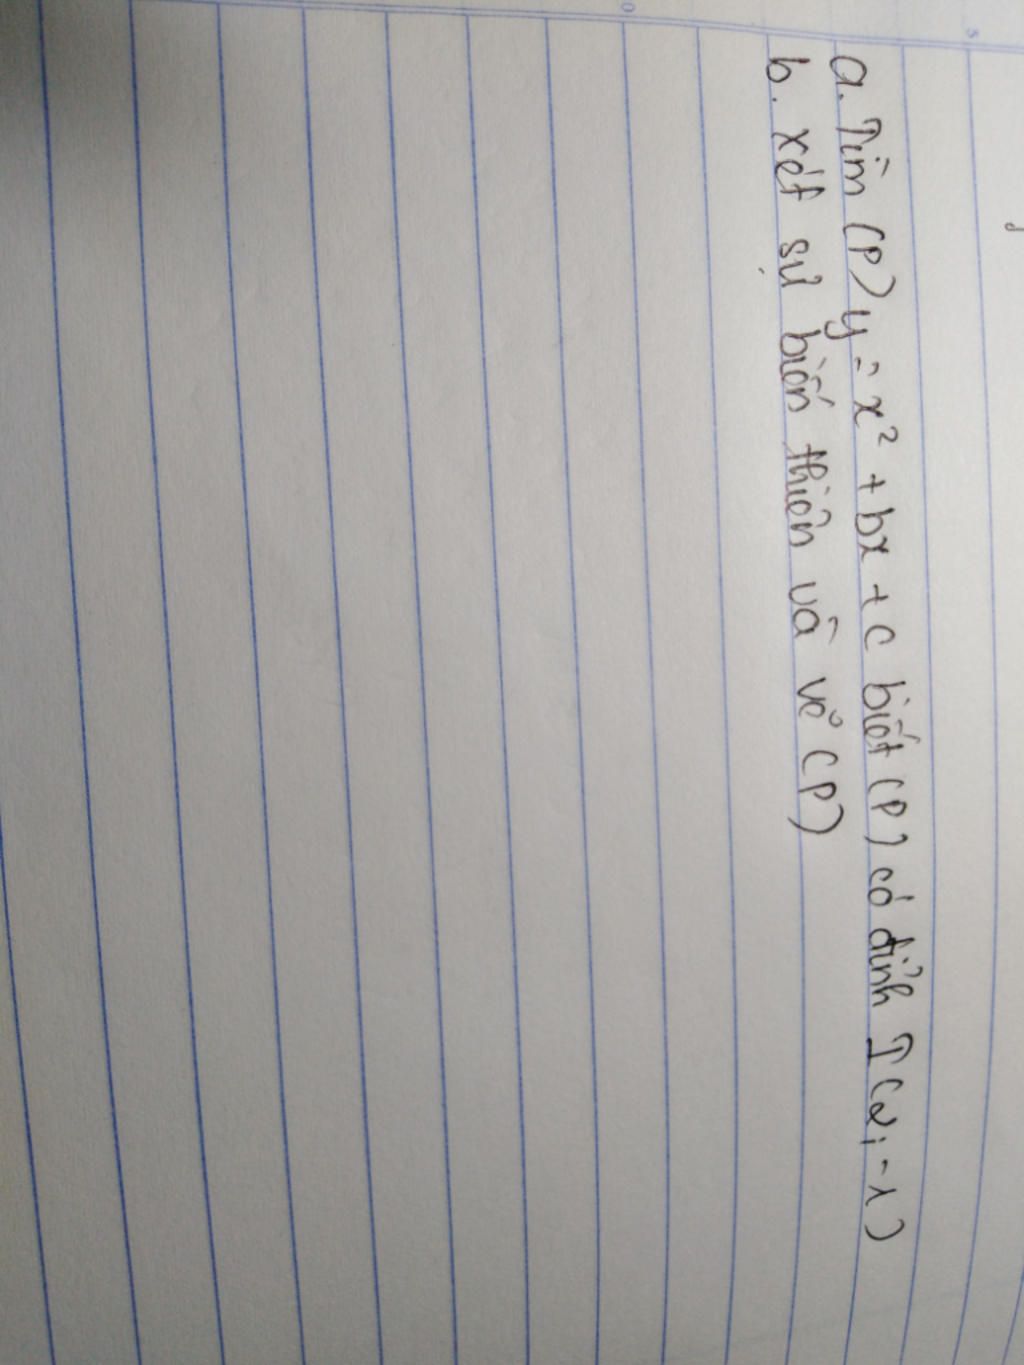 a. Tìm (P) y = x² + bx + c biết (P) có đỉnh I (2; -1)
b. xét sự biến thiên và vẽ (P)